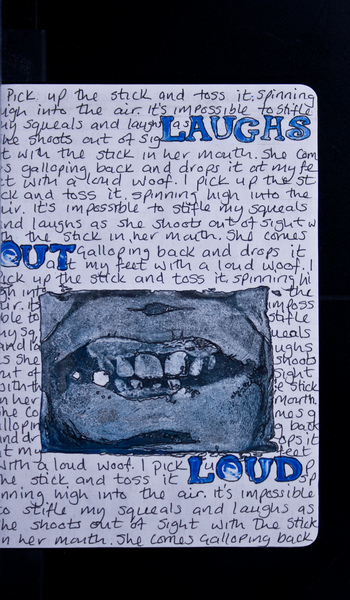 Pick up the stick and toss it, spinning
high into the air. It's impossible to stifle
my squeals and laughs as
LAUGHS
she shoots out of sig
t with the stick in her mouth. She com
s galloping back and drops it at my fe
et with a loud woof. I pick up the st
ick and toss it, spinning high into the
air. It's impossible to stifle my squeals
and laughs as she shoots out of sight w
ith the stick in her mouth. She comes
OUT
galloping back and drops it
at my feet with a loud woof. I
ick up the stick and toss it, spinning hi
gh in
imposs
stifle
my sq
ueals
and la
ughs
as she
shoots
out of
sight
with th
e stick
n her
mouth.
She co
mes g
allopin
g back
and dr
ops it
at my
with a loud woof. I pick
LOUD
the stick and toss it
sp
inning high into the air. It's impossible
to stifle my squeals and laughs as
she shoots out of sight with the stick
in her mouth. She comes galloping back